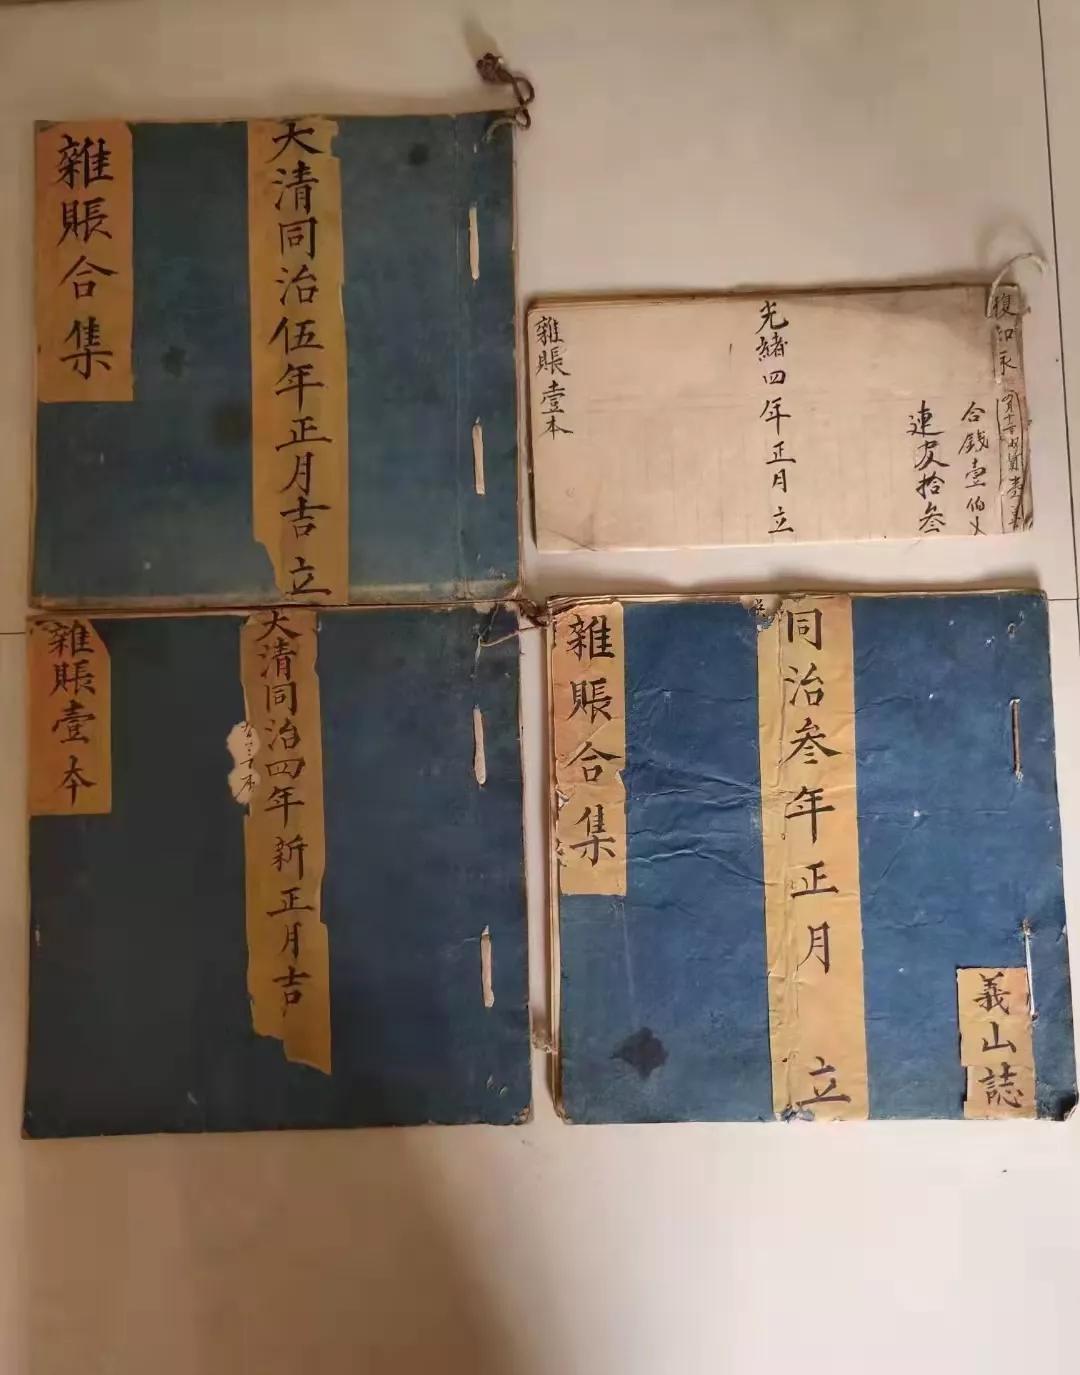 大清同治伍年正月吉立
雜賬合集
復和永
合錢壹伯文
連皮拾叁
光緒四年正月立
雜賬壹本
大清同治四年新正月吉
雜賬壹本
義山誌
同治叁年正月立
雜賬合集